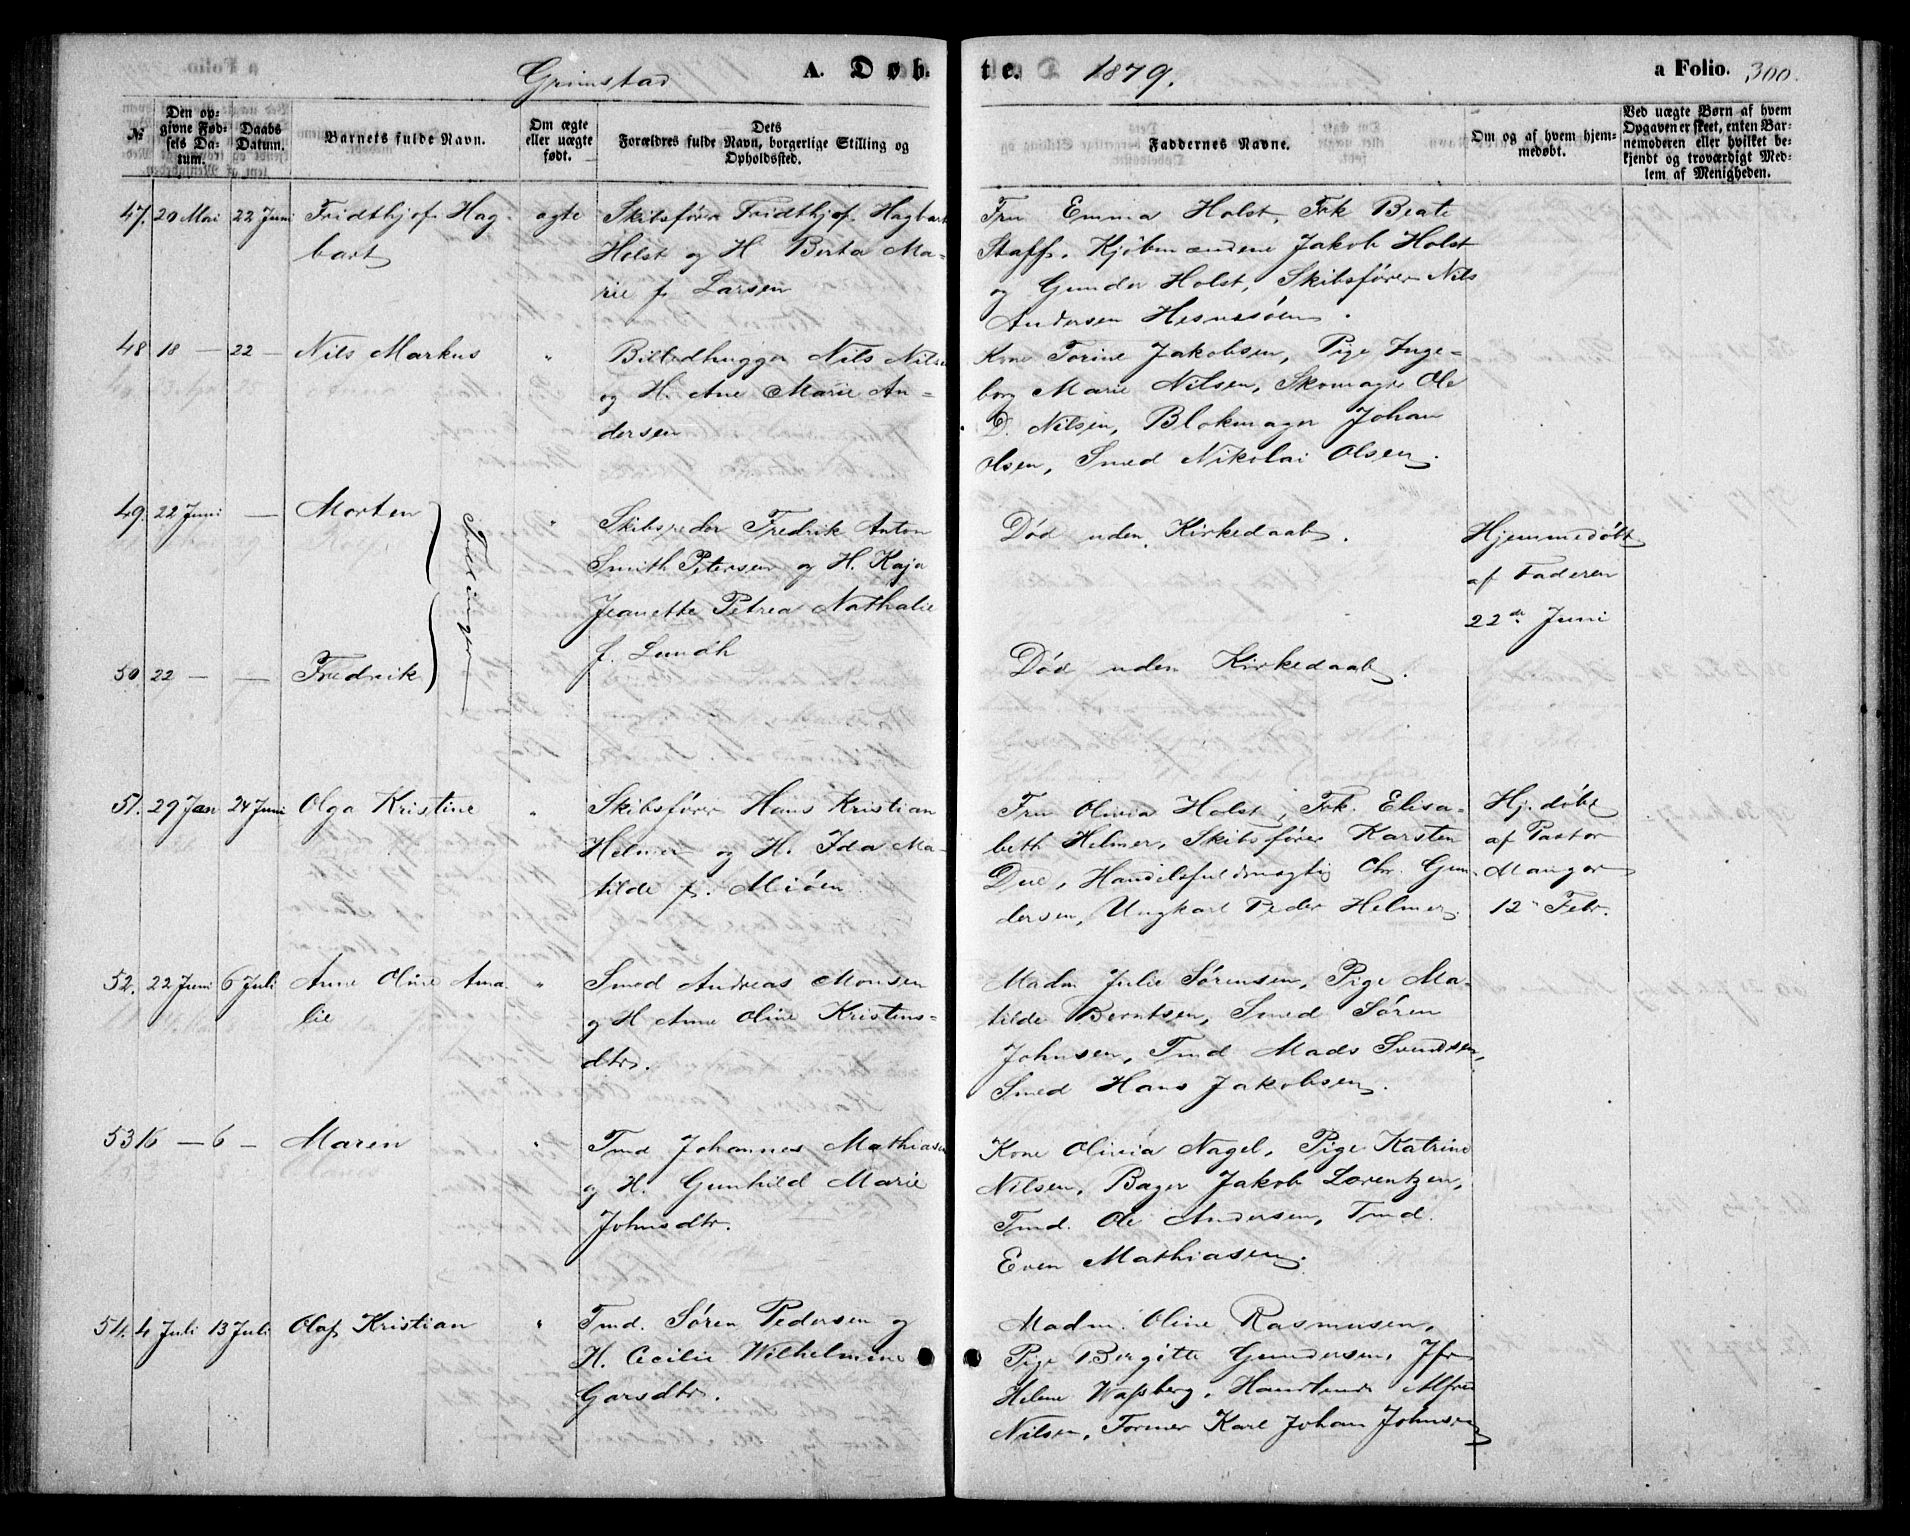 Grimstad A. Døb- te. 1879. a Folio. 300.
№
Den op-
givne Fød-
sels Da-
tum.
Daabs
Datum.
Barnets fulde Navn.
Om ægte
eller uægte
født.
Dets
Forældres fulde Navn, borgerlige Stilling og
Opholdssted.
Faddernes Navne.
Om og af hvem hjem-
medøbt.
Ved uægte Børn af hvem
Opgaven er skeet, enten Bar-
nemoderen eller hvilket be-
kjendt og troværdigt Med-
lem af Menigheden.
47. 20 Mai 22 Juni Fridthjof Hag-
bart
ægte
Skibsfører Fridthjof Hagbart
Holst og H. Berta Ma-
rie f. Larsen
Fru Emma Holst, Frk Beate
Staff, Kjøbmændene Jakob Holst
og Gunder Holst, Skibsfører Nils
Andersen Hesnesøen.
48 18 — 22 — Nils Markus "
Billedhugger Nils Nilsen
og H. Ane Marie An-
dersen
Kone Torine Jakobsen, Pige Inge-
borg Marie Nilsen, Skomager Ole
D. Nilsen, Blokmager Johan
Olsen, Smed Nikolai Olsen.
49. 22 Juni — Morten "
Tvillinger
Skibsreder Fredrik Anton
Smith Petersen og H. Kaja
Jeanette Petrea Nathalie
f. Lundh
Død uden Kirkedaab.
Hjemmedøbt
af Faderen
22de Juni
50. 22 — — Fredrik
Død uden Kirkedaab.
51. 29 Jan 24 Juni Olga Kristine "
Skibsfører Hans Kristian
Helmer og H. Ida Ma-
tilde f. Miøen
Fru Olivia Holst, Frk. Elisa-
beth Helmer, Skibsfører Karsten
Due, Handelsfuldmægtig Chr. Gun-
dersen, Ungkarl Peder Helmer.
Hj. døbt
af Pastor
Manger
12 Febr.
52. 22 Juni 6 Juli Anne Oline Ama-
lie
"
Smed Andreas Monsen
og H Anne Oline Kristens-
dtr.
Madm Julie Sørensen, Pige Ma-
tilde Berntsen, Smed Søren
Johnsen, Tmd Mads Svendsen,
Smed Hans Jakobsen.
53 16 — 6 — Maren "
Tmd Johannes Mathiasen
og H. Gunhild Marie
Johnsdtr.
Kone Olivia Nagel, Pige Katrine
Nilsen, Bager Jakob Lorentzen,
Tmd. Ole Andersen, Tmd.
Even Mathiasen.
54. 4 Juli 13 Juli Olaf Kristian "
Tmd. Søren Pedersen og
H. Cecilie Wilhelmine
Garsdtr.
Madm. Oline Rasmusen,
Pige Bergitte Gundersen, Jfr
Helene Wassberg, Handlende Alfred
Nilsen, Former Karl Johan Johnsen